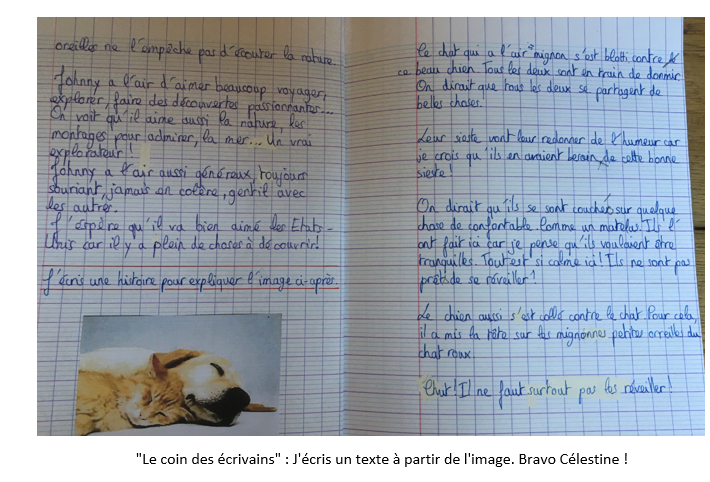 oreilles ne l'empêche pas d'écouter la nature.
Johnny a l'air d'aimer beaucoup voyager,
explorer, faire des découvertes passionnantes...
On voit qu'il aime aussi la nature, les
montages pour admirer, la mer... Un vrai
explorateur !
Johnny a l'air aussi généreux, toujours
souriant, jamais en colère, gentil avec
les autres.
J'espère qu'il va bien aimé les Etats-
Unis car il y a plein de choses à découvrir!
J'écris une histoire pour expliquer l'image ci-après.
Le chat qui a l'air mignon s'est blotti contre
ce beau chien. Tous les deux sont en train de dormir.
On dirait que tous les deux se partagent de
belles choses.
Leur sieste vont leur redonner de l'humeur car
je crois qu'ils en avaient besoin, de cette bonne
sieste !
On dirait qu'ils se sont couchés sur quelque
chose de confortable. Comme un matelas. Ils l'
ont fait ici car je pense qu'ils voulaient être
tranquilles. Tout est si calme ici ! Ils ne sont pas
prêts de se réveiller !
Le chien aussi s'est collé contre le chat. Pour cela,
il a mis la tête sur les mignonnes petites oreilles du
chat roux.
Chut ! Il ne faut surtout pas les réveiller !
"Le coin des écrivains" : J'écris un texte à partir de l'image. Bravo Célestine !